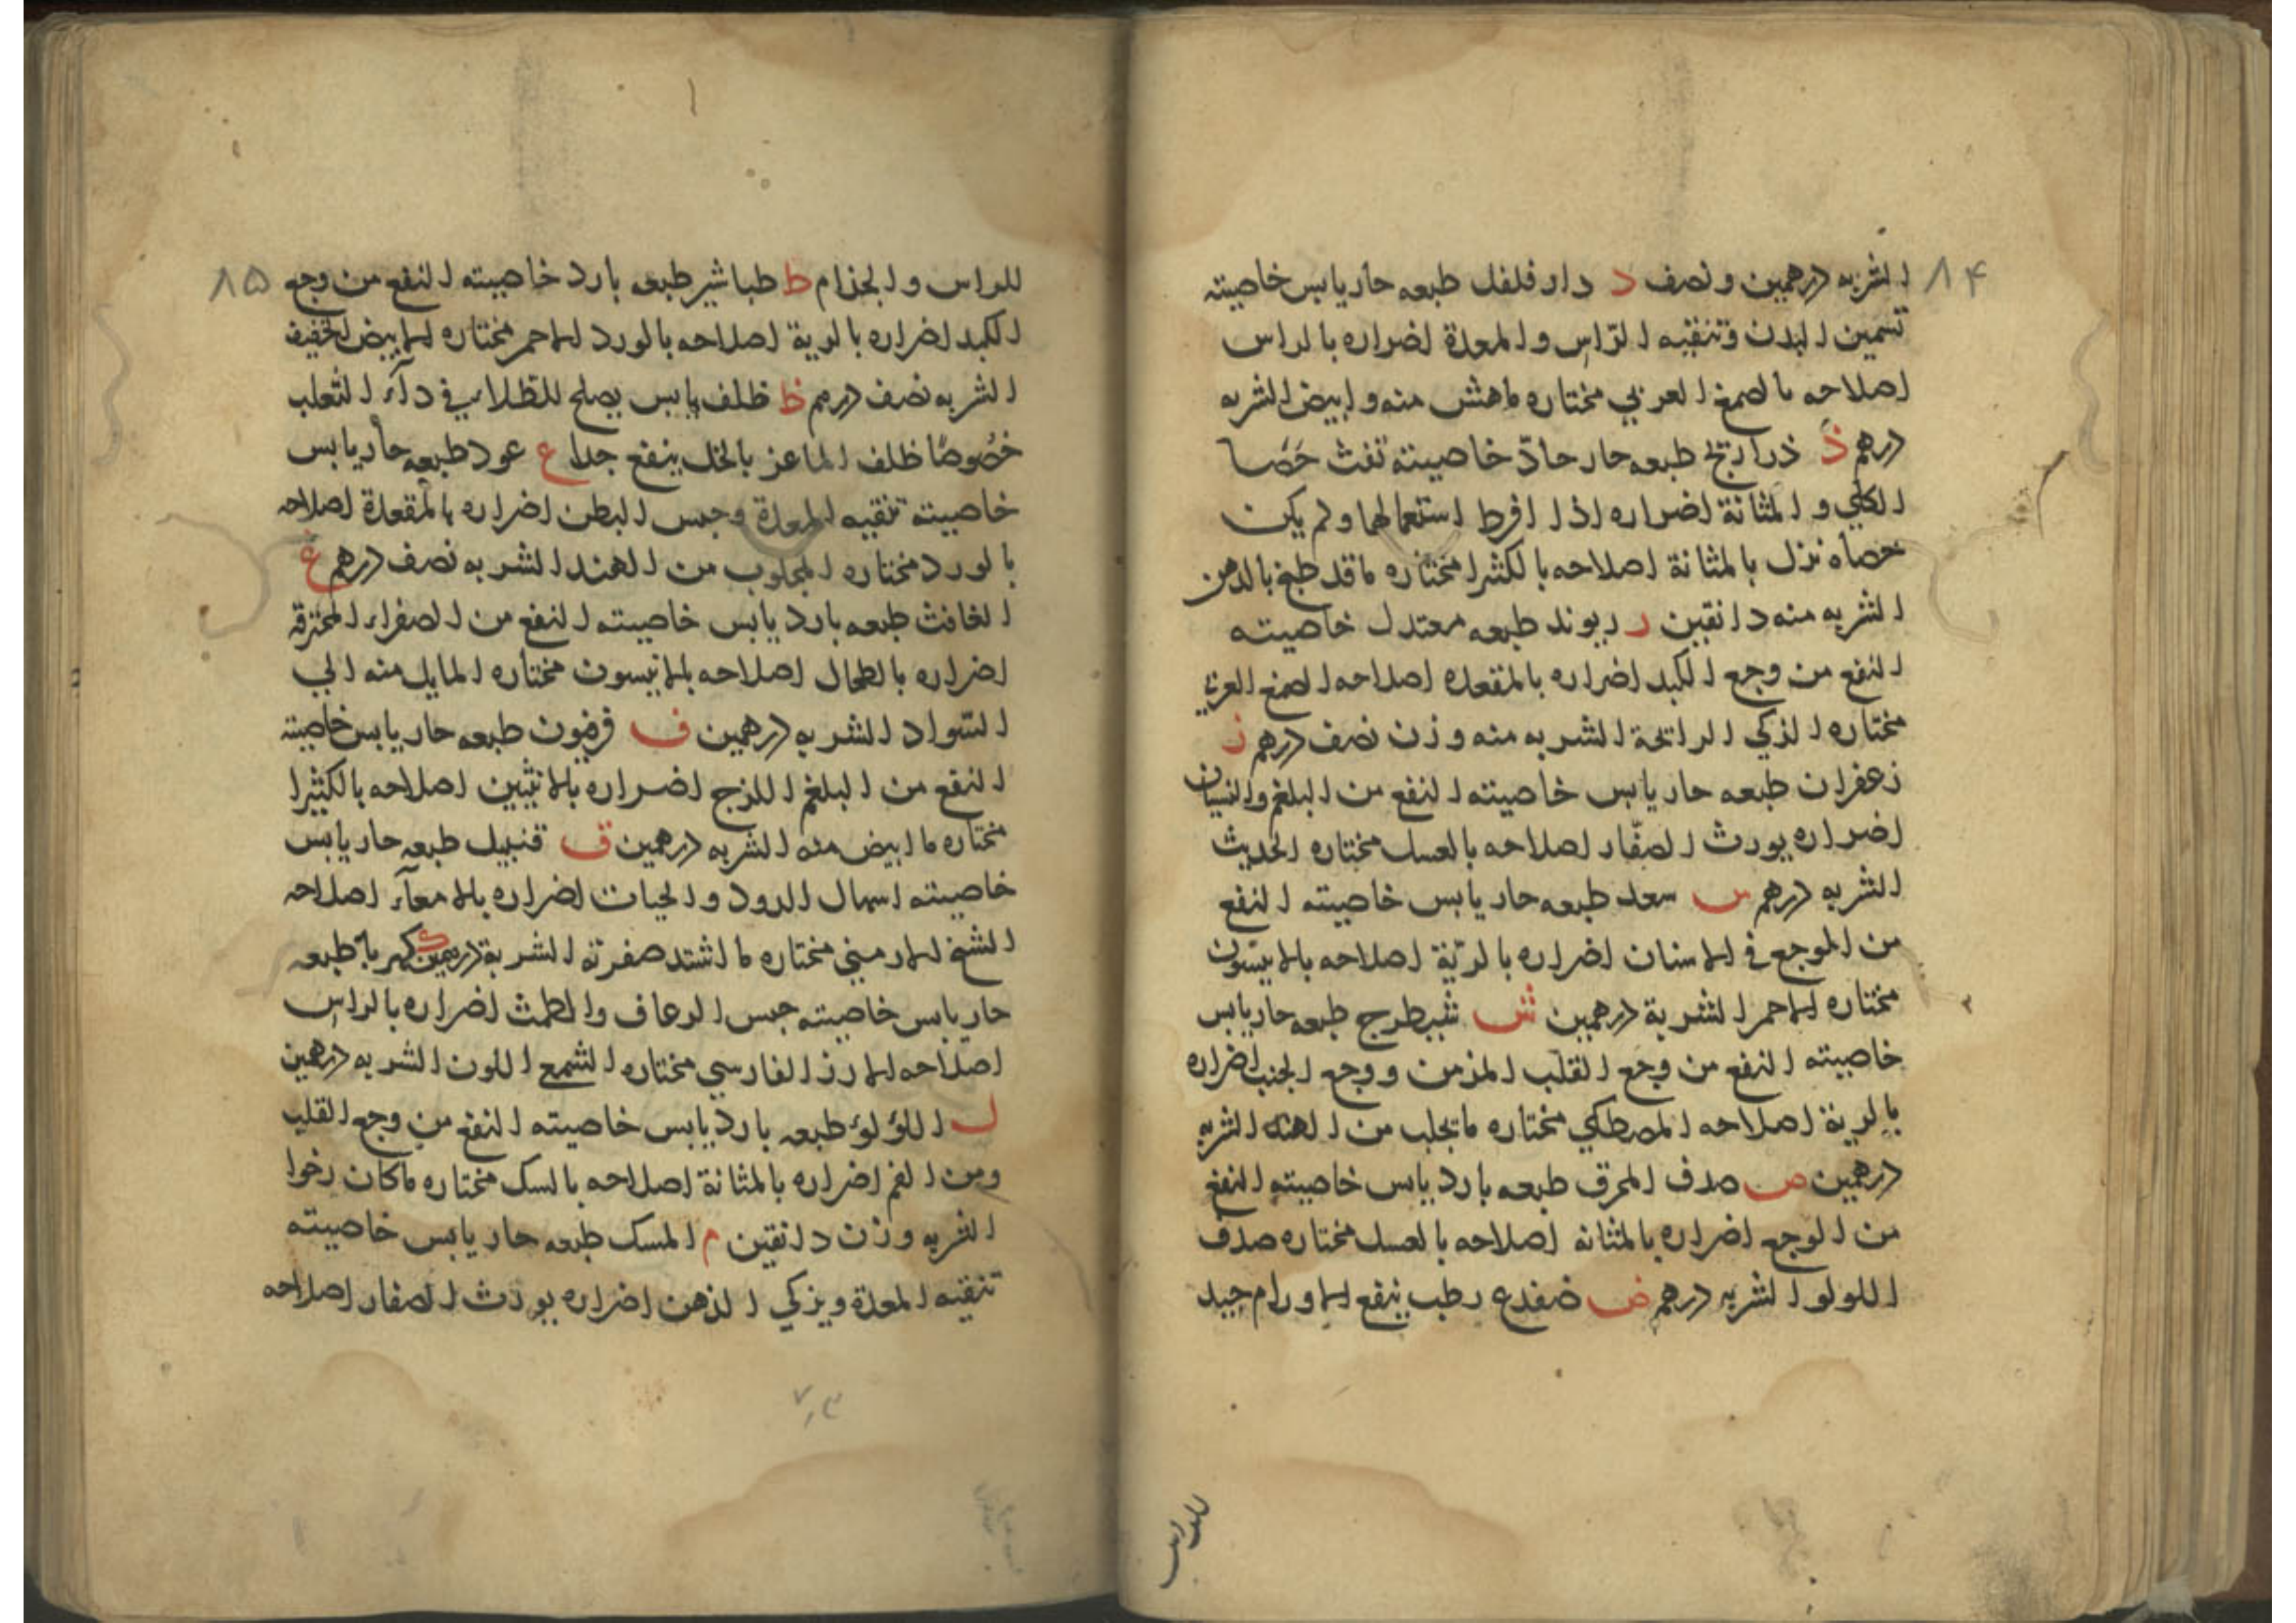 ٨۴
الشربه درهمين ونصف د دار فلفل طبعه حار يابس خاصيته
تسمين البدن وتنقيه الرّاس والمعدة اضراره بالراس
اصلاحه بالصمغ العربي مختاره ماهش منه وابيض الشربه
درهم ذ ذراريح طبعه حار حادّ خاصيته تفث حَصَا
الكلي والمثانة اضراره اذا افرط استعمالها ولم يكن
حصاه نزل بالمثانة اصلاحه بالكثيرا مختاره ماقد طبخ بالدهن
الشربه منه دانقين ر ريوند طبعه معتدل خاصيته
النفع من وجع الكبد اضراره بالمقعده اصلاحه الصمغ العربي
مختاره الذكي الرائحة الشربه منه وزن نصف درهم ز
زعفران طبعه حار يابس خاصيته النفع من البلغم والنسيان
اضراره يورث الصفّار اصلاحه بالعسل مختاره الحديث
الشربه درهم س سعد طبعه حار يابس خاصيته النفع
من الموجع في الاسنان اضراره بالريّة اصلاحه بالانيسون
مختاره الاحمر الشربة درهمين ش شيطرج طبعه حار يابس
خاصيته النفع من وجع القلب المزمن ووجع الجنب اضراره
بالرية اصلاحه المصطكي مختاره مايجلب من الهند الشربه
درهمين ص صدف المحرق طبعه بارد يابس خاصيته النفع
من الوجع اضراره بالمثانه اصلاحه بالعسل مختاره صدف
اللولو الشربه درهم ض ضفدع رطب ينفع الاورام جيد
للداس
٨۵
للراس والجذام ط طباشير طبعه بارد خاصيته النفع من وجع
الكبد اضراره بالرية اصلاحه بالورد الاحمر مختاره الابيض الخفيف
الشربه نصف درهم ظ ظلف يابس يصلح للطلاء في دآء الثعلب
خصُوصًا ظلف الماعز بالخل ينفع جدا ع عود طبعه حار يابس
خاصيته تنقيه المعدة وحبس البطن اضراره بالمقعدة اصلاحه
بالورد مختاره المجلوب من الهند الشربه نصف درهم غ
الغافث طبعه بارد يابس خاصيته النفع من الصفراء المحترقه
اضراره بالطحال اصلاحه بالانيسون مختاره المايل منه الي
السّواد الشربه درهمين ف فرفيون طبعه حار يابس خاصيته
النفع من البلغم اللزج اضراره بالانثيين اصلاحه بالكثيرا
مختاره ما ابيض منه الشربه درهمين ق قنبيل طبعه حار يابس
خاصيته اسهال الدود والحيات اضراره بالامعآء اصلاحه
الشيخ الارميني مختاره ما اشتد صفرته الشربة درهمين ك كهربا طبعه
حار يابس خاصيته حبس الرعاف والطمث اضراره بالراس
اصلاحه الارز الفارسي مختاره الشمع اللون الشربه درهمين
ل اللؤلؤ طبعه بارد يابس خاصيته النفع من وجع القلب
ومن الغم اضراره بالمثانة اصلاحه بالسك مختاره ماكان رخوا
الشربه وزن دانقين م المسك طبعه حار يابس خاصيته
تنقيه المعدة ويزكي الذهن اضراره يورث الصفار اصلاحه